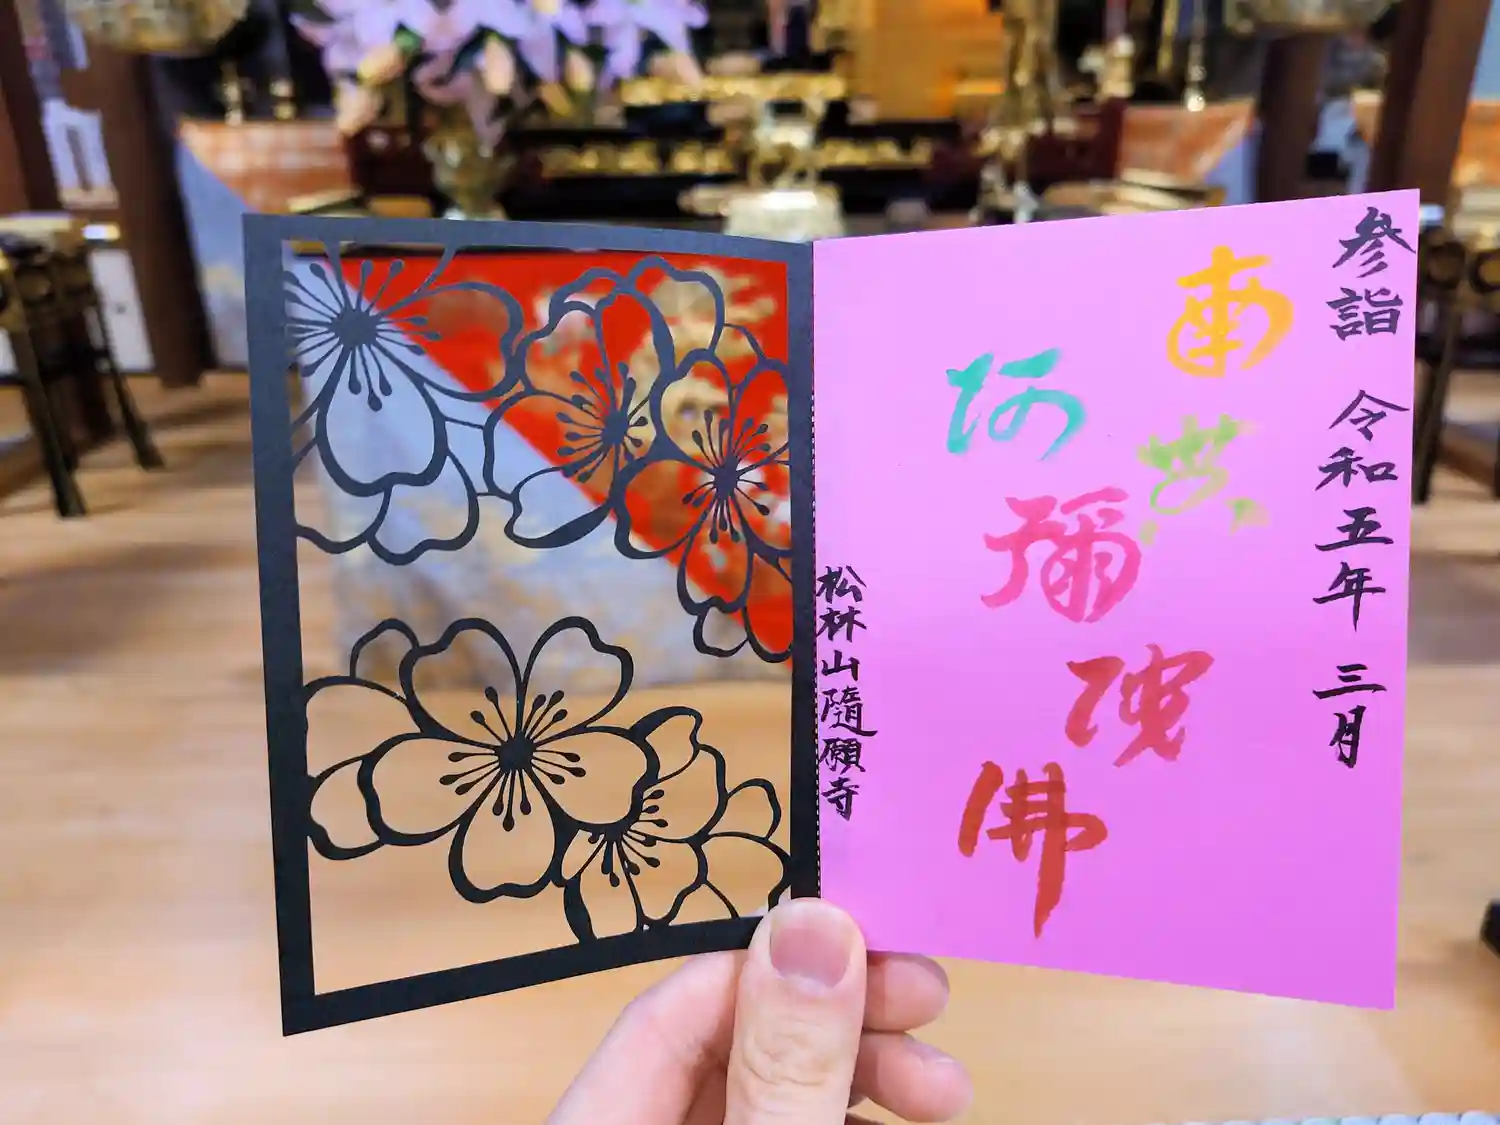 参詣 令和五年 三月
南無
阿彌陀佛
松林山隨願寺